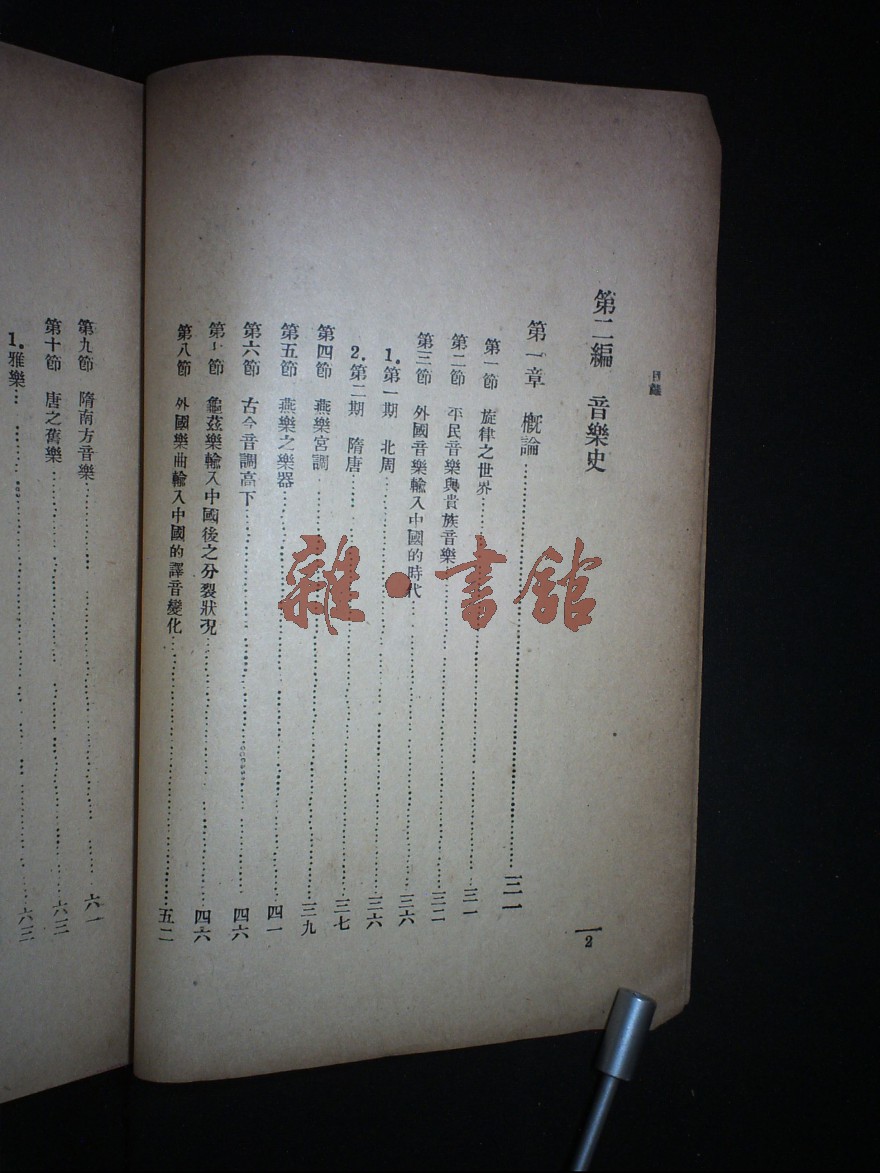 目錄
第二編　音樂史
第一章　概論……三一
第一節　旋律之世界……三一
第二節　平民音樂與貴族音樂……三二
第三節　外國音樂輸入中國的時代……三六
1.第一期　北周……三六
2.第二期　隋唐……三七
第四節　燕樂宮調……三九
第五節　燕樂之樂器……四一
第六節　古今音調高下……四六
第七節　龜茲樂輸入中國後之分裂狀況……四六
第八節　外國樂曲輸入中國的譯音變化……五二
2
第九節　隋南方音樂……六一
第十節　唐之舊樂……六三
1.雅樂……六三
雜·書館